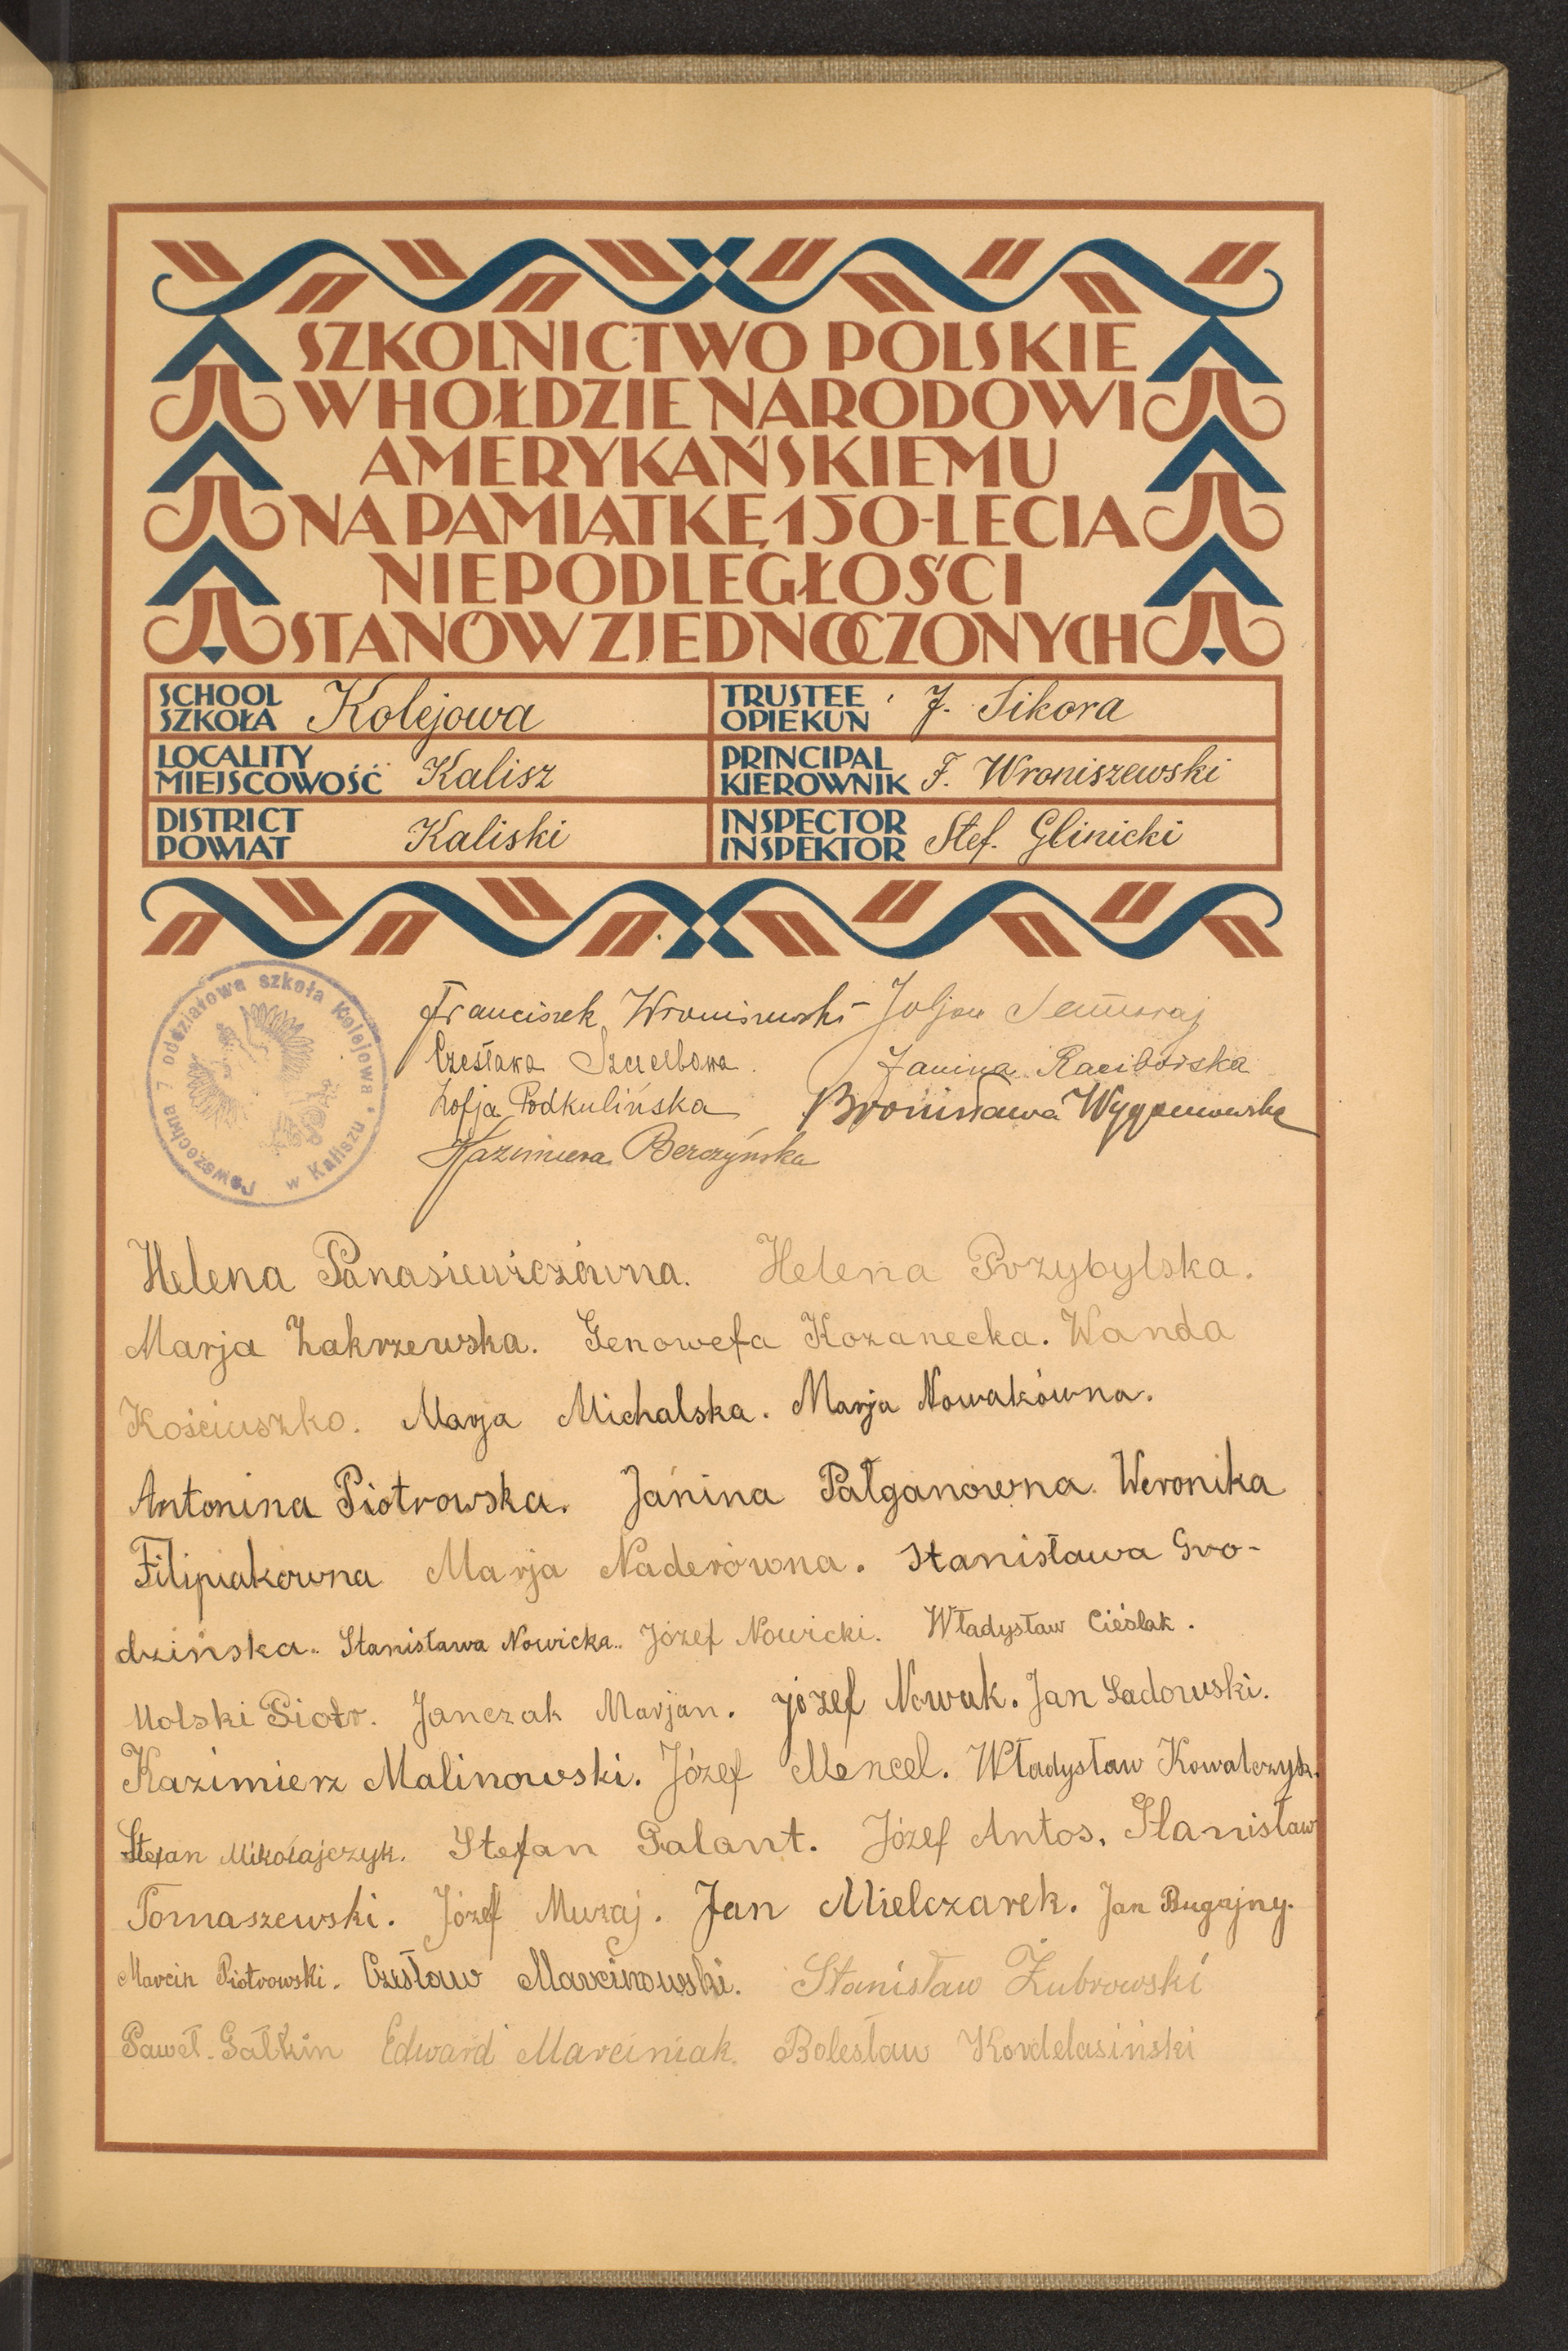 SZKOLNICTWO POLSKIE
W HOŁDZIE NARODOWI
AMERYKAŃSKIEMU
NA PAMIĄTKĘ 150-LECIA
NIEPODLEGŁOŚCI
STANÓW ZJEDNOCZONYCH
SCHOOL
SZKOŁA Kolejowa
TRUSTEE
OPIEKUN J. Sikora
LOCALITY
MIEJSCOWOŚĆ Kalisz
PRINCIPAL
KIEROWNIK F. Wroniszewski
DISTRICT
POWIAT Kaliski
INSPECTOR
INSPEKTOR Stef. Glinicki
Powszechna 7 oddziałowa szkoła Kolejowa w Kaliszu
Franciszek Wroniszewski Juljan
Czesława Szczerbowa. Janina Raciborska
Zofja Podkulińska Bronisława
Kazimiera Berczyńska
Helena Panasiewiczówna. Helena Przybylska.
Marja Zakrzewska. Genowefa Kozanecka. Wanda
Kościuszko. Marja Michalska. Marja Nowakówna.
Antonina Piotrowska. Janina Pałganówna. Weronika
Filipiakówna Marja Naderówna. Stanisława Gro-
dzińska. Stanisława Nowicka. Józef Nowicki. Władysław Cieślak.
Molski Piotr. Janczak Marjan. Józef Nowak. Jan Sadowski.
Kazimierz Malinowski. Józef Mencel. Władysław Kowalczyk.
Stefan Mikołajczyk. Stefan Galant. Józef Antos. Stanisław
Tomaszewski. Józef Muzaj. Jan Mielczarek. Jan Bugajny.
Marcin Piotrowski. Czesław Marcinowski. Stanisław Żubrowski
Paweł Gałkin Edward Marciniak. Bolesław Kordelasiński